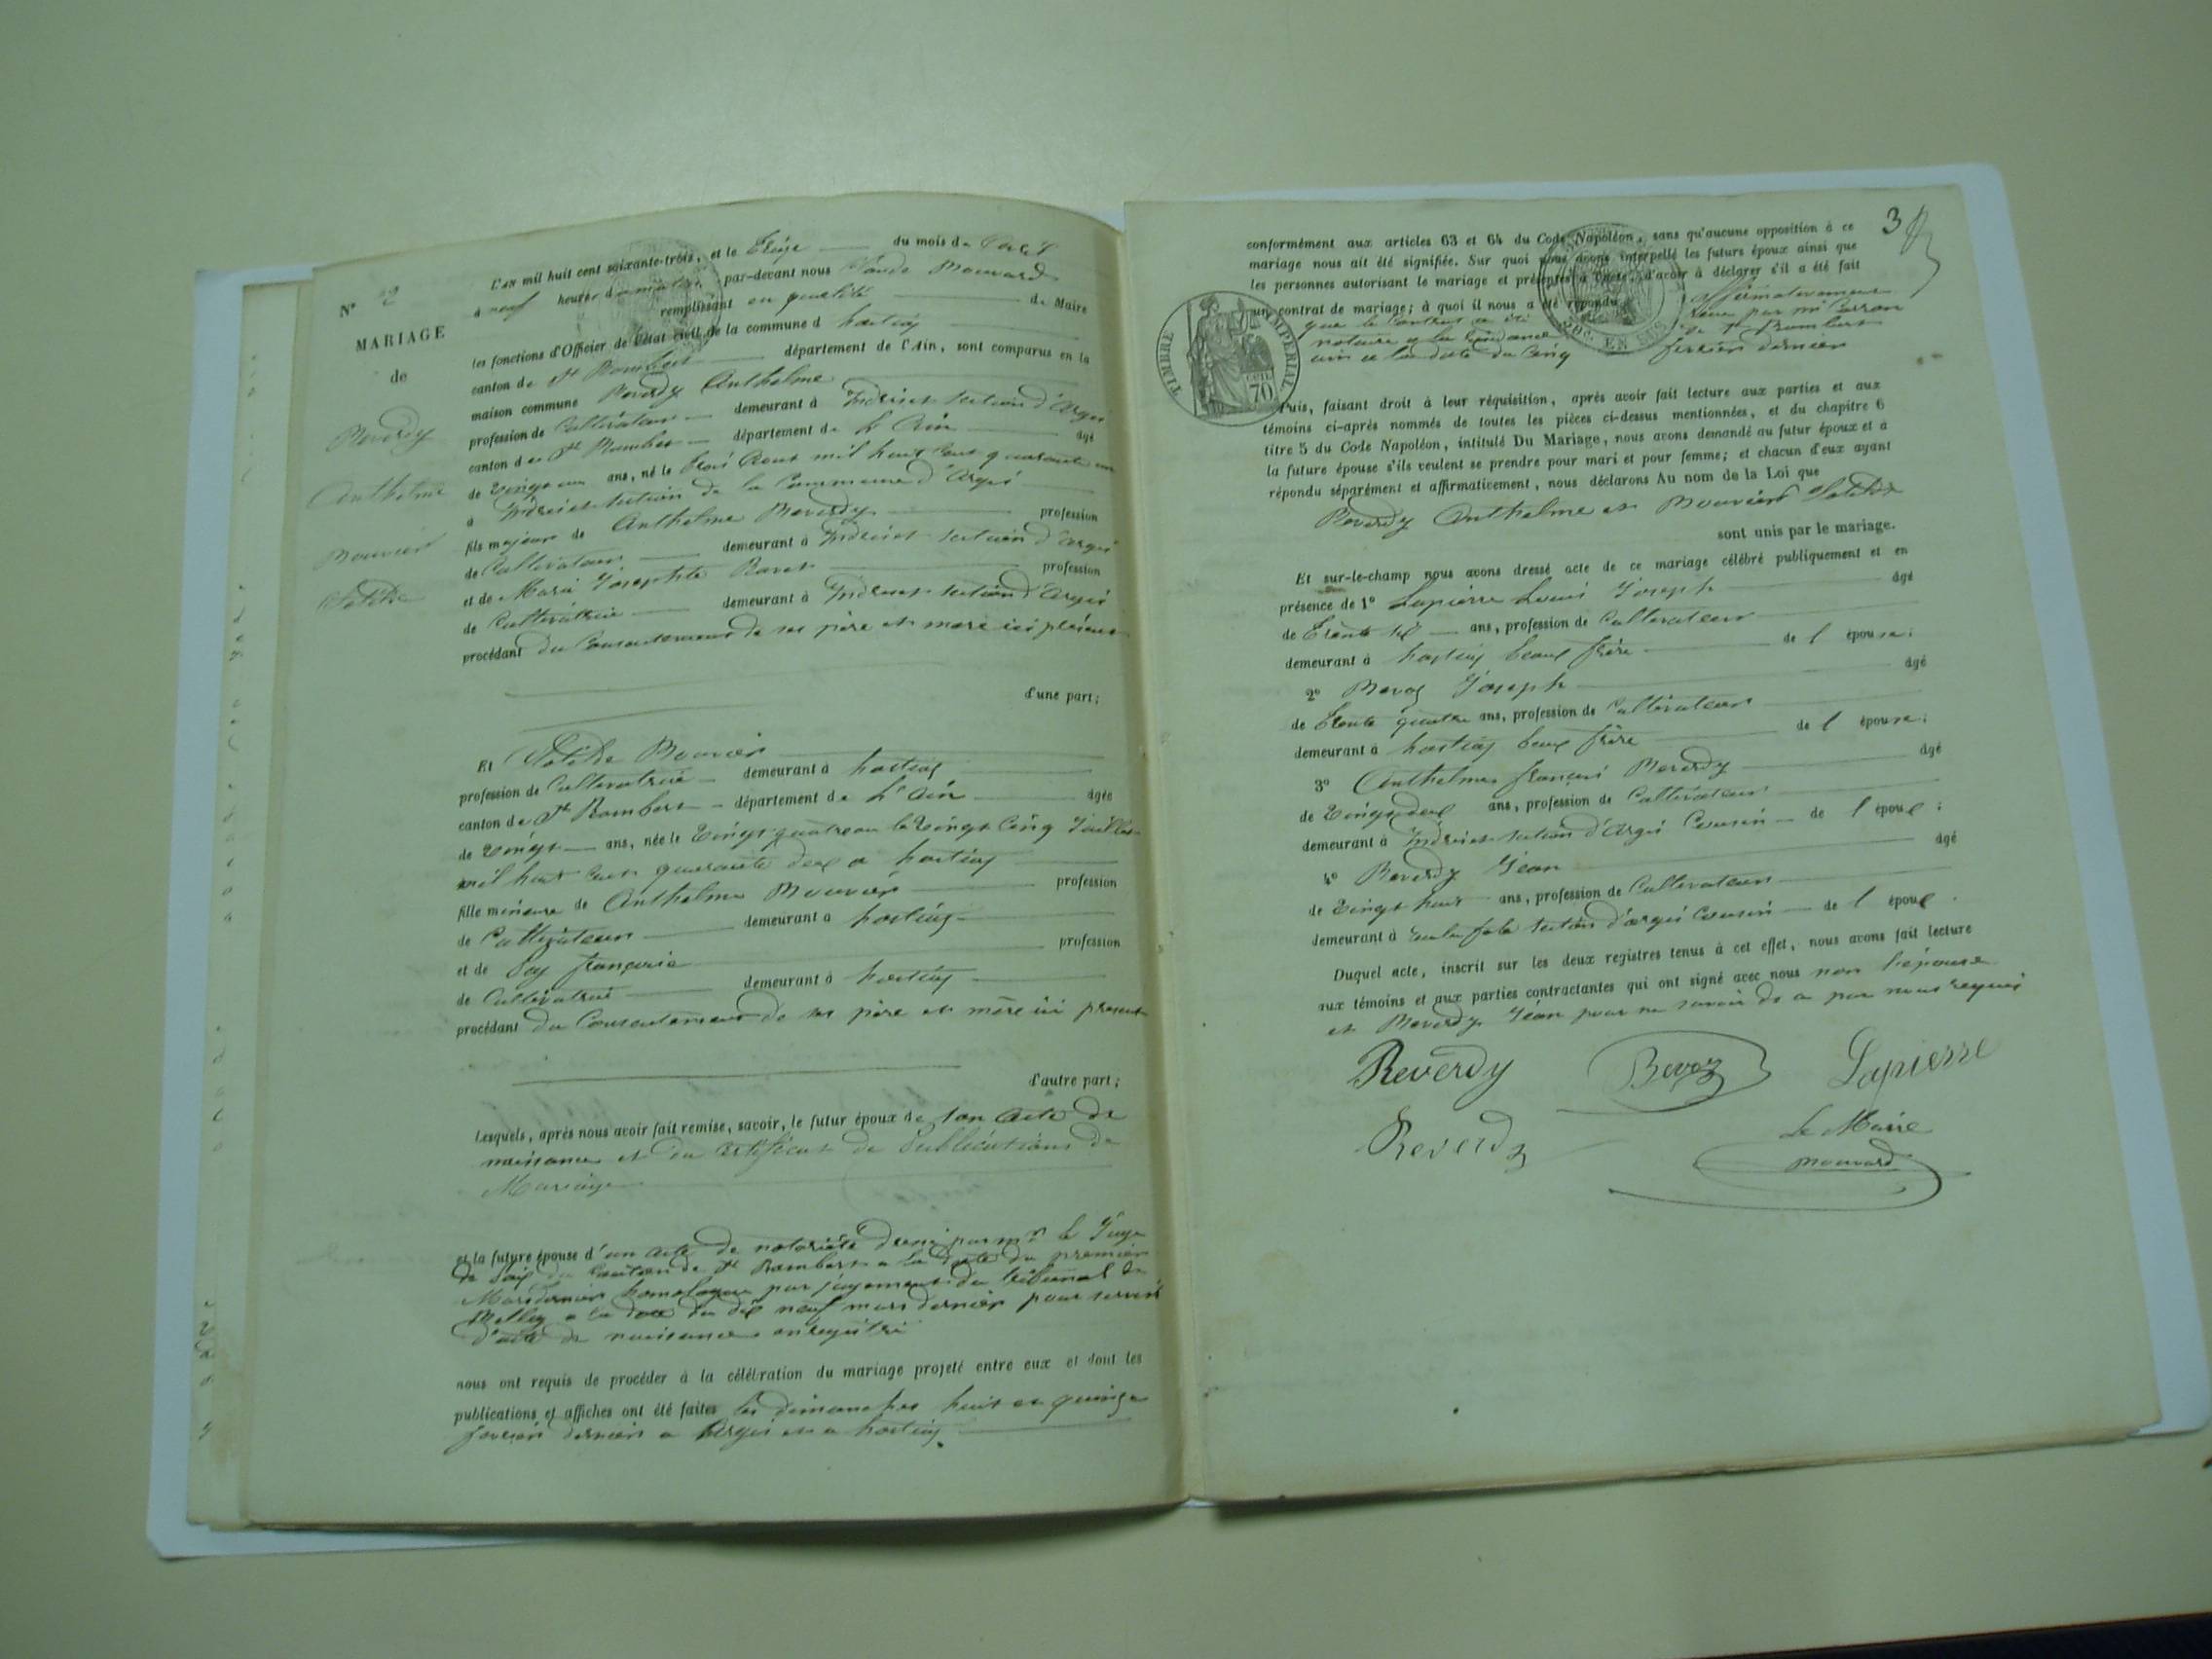 N° 2
MARIAGE
de
Reverdy
Anthelme
Bouvier
Clotilde
L'AN mil huit cent soixante-trois, et le treize du mois d'avril
à neuf heures du matin, par-devant nous Claude Mouvard
remplissant en qualité de Maire
les fonctions d'Officier de l'état civil de la commune d'hostiaz
canton de St Rambert département de l'Ain, sont comparus en la
maison commune Reverdy Anthelme
profession de Cultivateur demeurant à Indrieux section d'Argis
canton de St Rambert département de L'Ain âgé
de vingt un ans, né le trois Aout mil huit cent quarante un
à Indrieux section de la Commune d'Argis
fils majeur de Anthelme Reverdy profession
de Cultivateur demeurant à Indrieux section d'Argis
et de Marie Josephte profession
de Cultivatrice demeurant à Indrieux section d'Argis
procédant du Consentement de ses père et mère ici présents
d'une part;
Et Clotilde Bouvier
profession de Cultivatrice demeurant à hostiaz
canton de St Rambert département de L'Ain âgée
de vingt ans, née le vingt quatre ou le vingt cinq Juillet
mil huit cent quarante deux a hostiaz
fille mineure de Anthelme Bouvier profession
de Cultivateur demeurant à hostiaz
et de françoise profession
de Cultivatrice demeurant à hostiaz
procédant du Consentement de ses père et mère ici présents
d'autre part;
Lesquels, après nous avoir fait remise, savoir, le futur époux de son acte de
naissance et du certificat de Publications de
Mariage
et la future épouse d'un acte de notoriété dressé par mr le Juge
de Paix du Canton de St Rambert a la date du premier
Mars dernier homologué par jugement du tribunal de
Belley a la date du dix neuf mars dernier pour servir
d'acte de naissance enregistré
nous ont requis de procéder à la célébration du mariage projeté entre eux et dont les
publications et affiches ont été faites les dimanches huit et quinze
fevrier dernier a Argis et a hostiaz
3
conformément aux articles 63 et 64 du Code Napoléon, sans qu'aucune opposition à ce
mariage nous ait été signifiée. Sur quoi nous avons interpellé les futurs époux ainsi que
les personnes autorisant le mariage et présentes à l'acte, d'avoir à déclarer s'il a été fait
un contrat de mariage; à quoi il nous a été répondu affirmativement
que le Contrat a été recu par mr
notaire a la résidence de St Rambert
ain a la date du cinq fevrier dernier
TIMBRE IMPERIAL
70
EN SUS
Puis, faisant droit à leur réquisition, après avoir fait lecture aux parties et aux
témoins ci-après nommés de toutes les pièces ci-dessus mentionnées, et du chapitre 6
titre 5 du Code Napoléon, intitulé Du Mariage, nous avons demandé au futur époux et à
la future épouse s'ils veulent se prendre pour mari et pour femme; et chacun d'eux ayant
répondu séparément et affirmativement, nous déclarons Au nom de la Loi que
Reverdy Anthelme et Bouvier Clotilde
sont unis par le mariage.
Et sur-le-champ nous avons dressé acte de ce mariage célébré publiquement et en
présence de 1° Lapierre Louis Joseph âgé
de trente six ans, profession de Cultivateur
demeurant à hostiaz beau frère de l'épouse;
2° Bevoz Joseph âgé
de trente quatre ans, profession de Cultivateur
demeurant à hostiaz beau frère de l'épouse;
3° Anthelme françois Reverdy âgé
de vingt deux ans, profession de Cultivateur
demeurant à Indrieux section d'Argis Cousin de l'époux;
4° Reverdy Jean âgé
de vingt huit ans, profession de Cultivateur
demeurant à section d'argis Cousin de l'époux.
Duquel acte, inscrit sur les deux registres tenus à cet effet, nous avons fait lecture
aux témoins et aux parties contractantes qui ont signé avec nous non l'épouse
et Reverdy Jean pour ne savoir de ce par nous requis
Reverdy Bevoz Lapierre
Reverdy
Le Maire
Mouvard